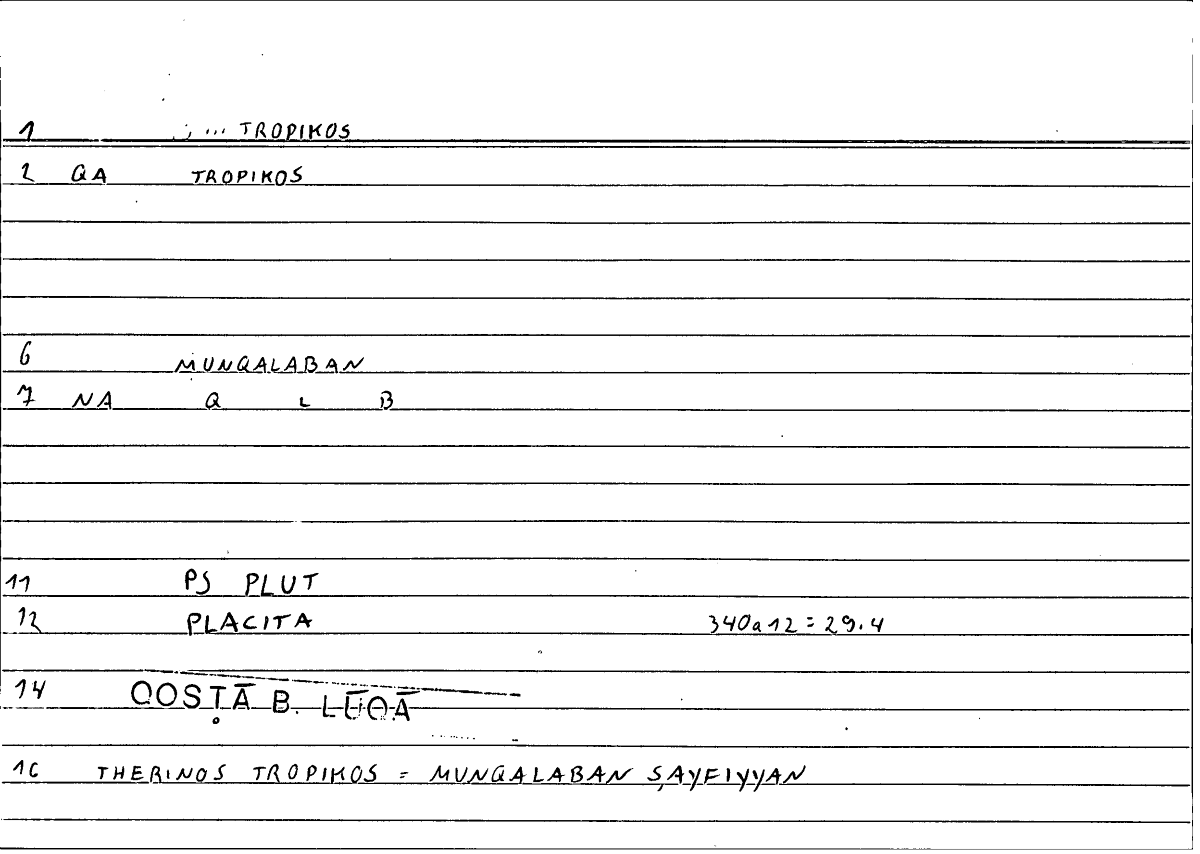 1 ... TROPIKOS
2 QA TROPIKOS
6 MUNQALABAN
7 NA Q L B
11 PS PLUT
12 PLACITA 340a12 = 29.4
14 QOSṬĀ B. LŪQĀ
16 THERINOS TROPIKOS = MUNQALABAN ṢAYFIYYAN